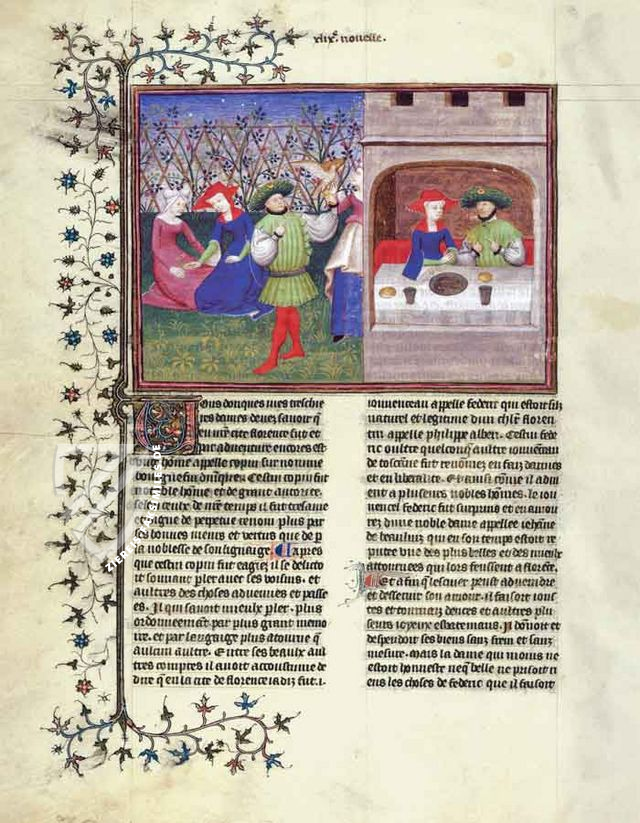 xlix.e nouelle.
Uous donques mes treschie
res dames deuez sauoir q̄
en nr̄e cite florence fut et
par aduenture encores est
ung hōme appelle copin sur nomme
bourgue fu dn̄iq̄re. Cestui copin fut
notable hōme et de grant auctorite.
selon ceulx de nr̄e temps il fut tresame
et digne de perpetue renom plus par
ses bonnes meurs et vertus que de p̄
la noblesse de son lignaige. Et apres
que cestui copin fut eagiez il se delicto
it souuant pler auec ses voisins. et
aultres des choses aduenues et passe
es. Il qui sauoit mieulx pler. plus
ordonneemēt par plus grant memo
ire. et par langaige plus atourne q̄
aulcun aultre. Entre ses beaulx aul
tres comptes il auoit accoustume de
dire qu en la cite de florence iadiz fut .i.
iouuenceau appelle federic qui estoit filz
naturel et legitime dun chlr̄ floren
tin appelle philippe alberi. Cestui fede
ric oultre quelconq̄ aultre iouuēceau
de toscēne fut renōmez en faiz darmes
et en liberalite. Et ainsi cōme il adui
ent a pluseurs nobles hōmes. le iou
uencel federic fut surpris et en amou
rez dune noble dame appellee iehāne
de beaulieu qui en son temps estoit re
putee une des plus belles et des mieulx
attournees qui lors feussent a florēce.
Et afin q̄ lescuier peust aduendre
et desseruir son amour. il faisoit ious
tes et tournoiz dences et aultres plu
seurs ioyeux esbatemans. Il dōnoit et
despendoit ses biens sanz frein et sanz
mesure. Mais la dame qui moins ne
estoit honneste neq̄ belle ne prisoit ri
ens les choses de federic que il faisoit